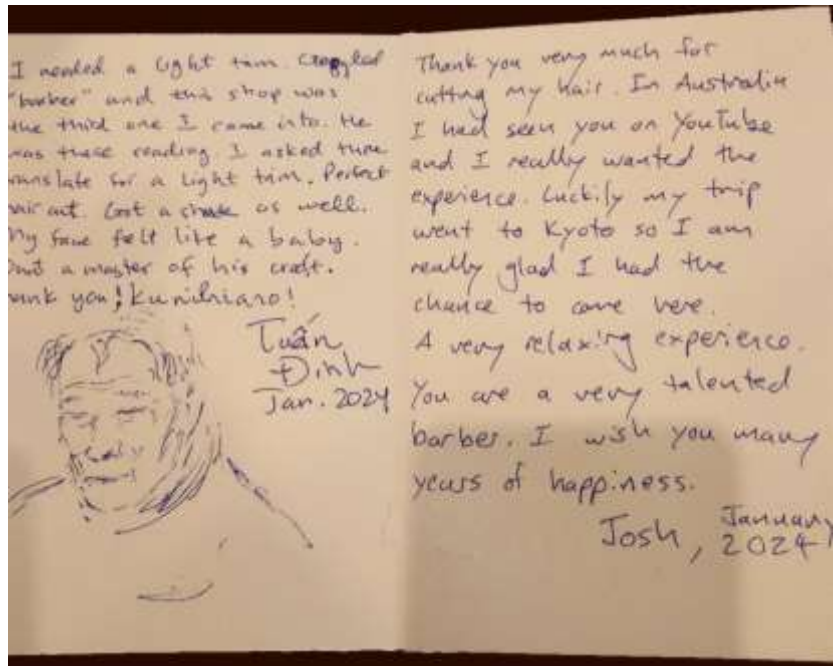 I needed a light trim. Googled
"barber" and this shop was
the third one I came into. He
was there reading. I asked
translate for a light trim. Perfect
hair cut. Got a shave as well.
My face felt like a baby.
a master of his craft.
Thank you!
Tuấn
Đinh
Jan. 2024
Thank you very much for
cutting my hair. In Australia
I had seen you on YouTube
and I really wanted the
experience. Luckily my trip
went to Kyoto so I am
really glad I had the
chance to come here.
A very relaxing experience.
You are a very talented
barber. I wish you many
years of happiness.
Josh, January
2024